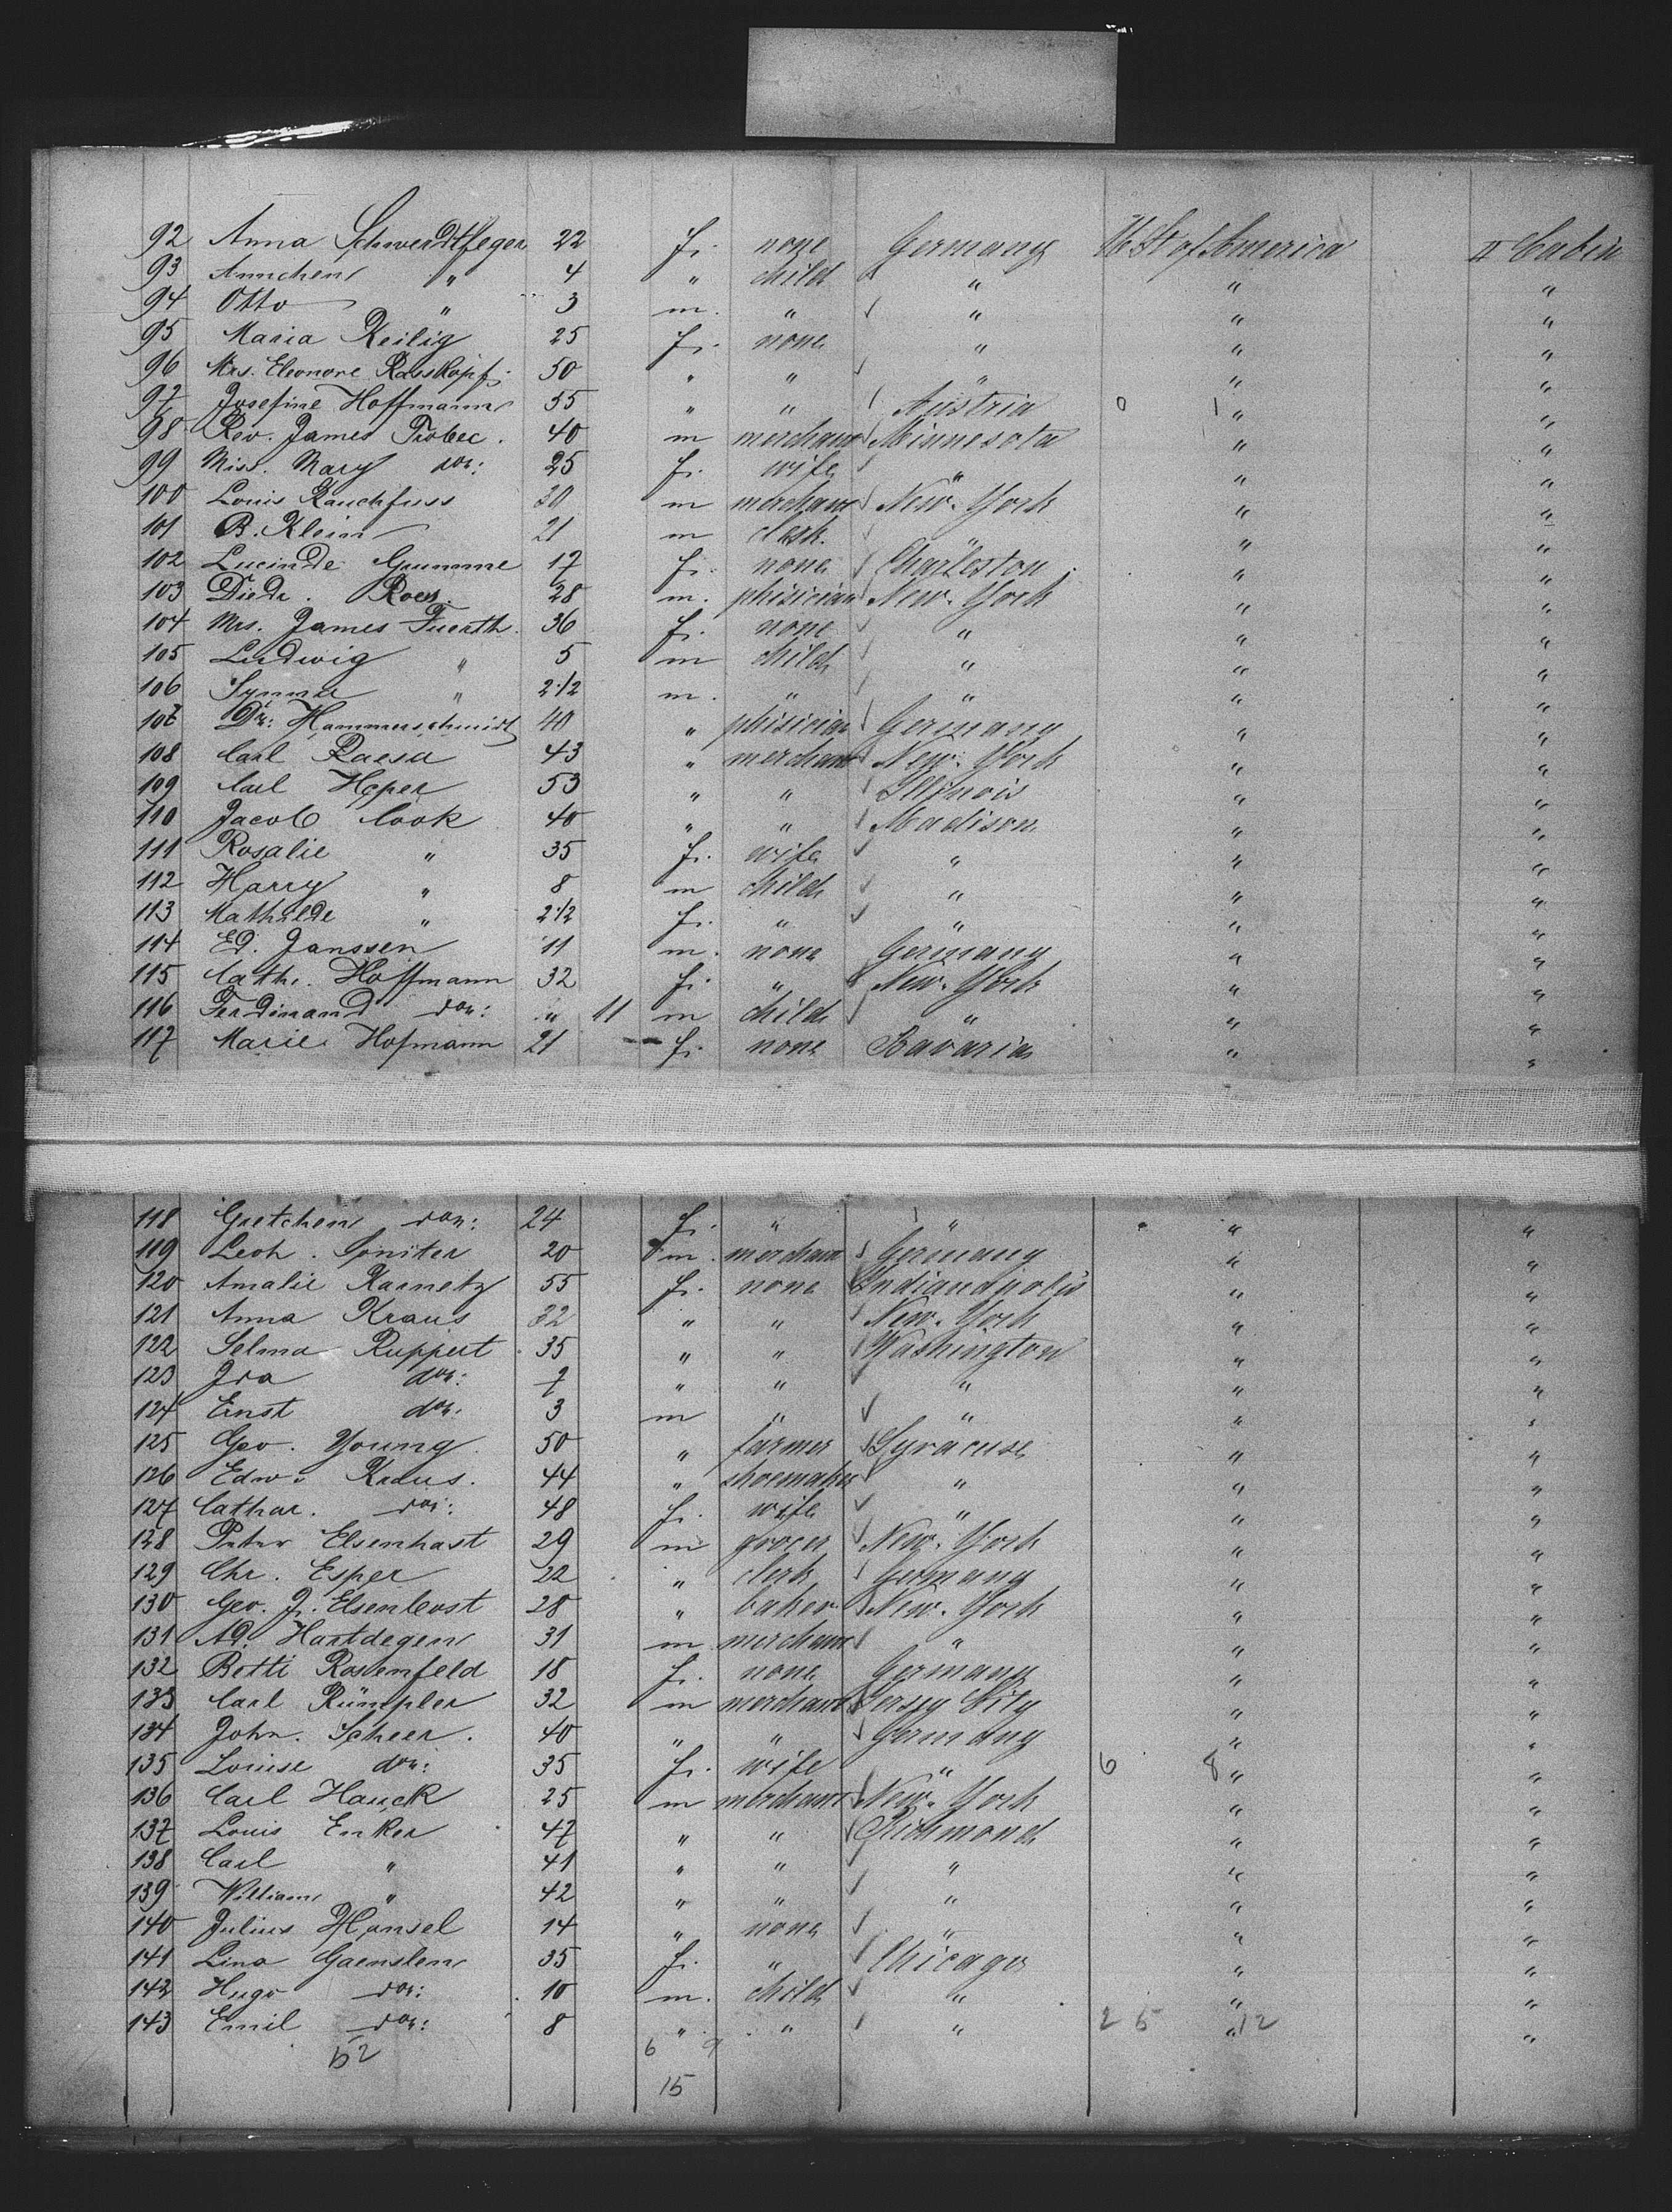 92 Anna Schwerdtfeger 22 f. none Germany U. St of America II Cabin
93 Annchen " 4 " child " " "
94 Otto " 3 m. " " " "
95 Maria Keilig 25 f. none " " "
96 Mrs. Eleonore Rosskopf 50 " " " " "
97 Josefine Hoffmann 55 " " Austria 0 1 " "
98 Rev. James Trobec. 40 m merchant Minnesota " "
99 Miss. Mary do: 25 f. wife " " "
100 Louis Rauchfuss 30 m merchant New-York " "
101 B. Klein 21 m clerk. " "
102 Lucinde Grumme 17 f. none Charleston " "
103 Diedr. Roes. 28 m. phisician New-York " "
104 Mrs. James Fuerth. 36 f. none " " "
105 Ludwig " 5 m child " " "
106 " 2 1/2 m. " " " "
107 Dr: Hammerschmidt 40 " phisician Germany " "
108 Carl 43 " merchant New-York " "
109 Carl 53 " " Illinois " "
110 Jacob Cook 40 " " Madison " "
111 Rosalie " 35 f. wife " " "
112 Harry " 8 m child " " "
113 Mathilde " 2 1/2 f. " " " "
114 Ed. Janssen 11 m. none Germany " "
115 Cath. Hoffmann 32 f. " New-York " "
116 Ferdinand do: " 11 m child " " "
117 Marie Hofmann 21 f. none Bavaria " "
118 Gretchen do: 24 f. " " " "
119 Leoh. 20 m. merchant Germany " "
120 Amalie Karnetz 55 f. none Indianapolis " "
121 Anna Kraus 32 " " New-York " "
122 Selma Ruppert 35 " " Washington " "
123 Ida do: 7 " " " " "
124 Ernst do: 3 m " " " "
125 Geo. Young 50 " farmer Syracuse " "
126 Edw. Kraus. 44 " shoemaker " " "
127 Cathar. do: 48 f. wife " " "
128 Peter Elsenhast 29 m grocer New-York " "
129 Chr. Esper 22 " clerk Germany " "
130 Geo. J. 28 " baker New-York " "
131 Ad. Hartdegen 31 m merchant " " "
132 Betti Rosenfeld 18 f. none Germany " "
133 Carl Rümpler 32 m merchant Jersey City " "
134 John. Scheer. 40 " " Germany " "
135 Louise do: 35 f. wife " 6 8 " "
136 Carl Hauck 25 m merchant New-York " "
137 Louis Enker 47 " " Richmond " "
138 Carl " 41 " " " " "
139 William " 42 " " " " "
140 Julius Hansel 14 " none " " "
141 Lina Gaenslen 35 f. " Chicago " "
142 Hugo do: 10 m. child " " "
143 Emil do: 8 " " " 2 5 " 12 "
52 6 9
15